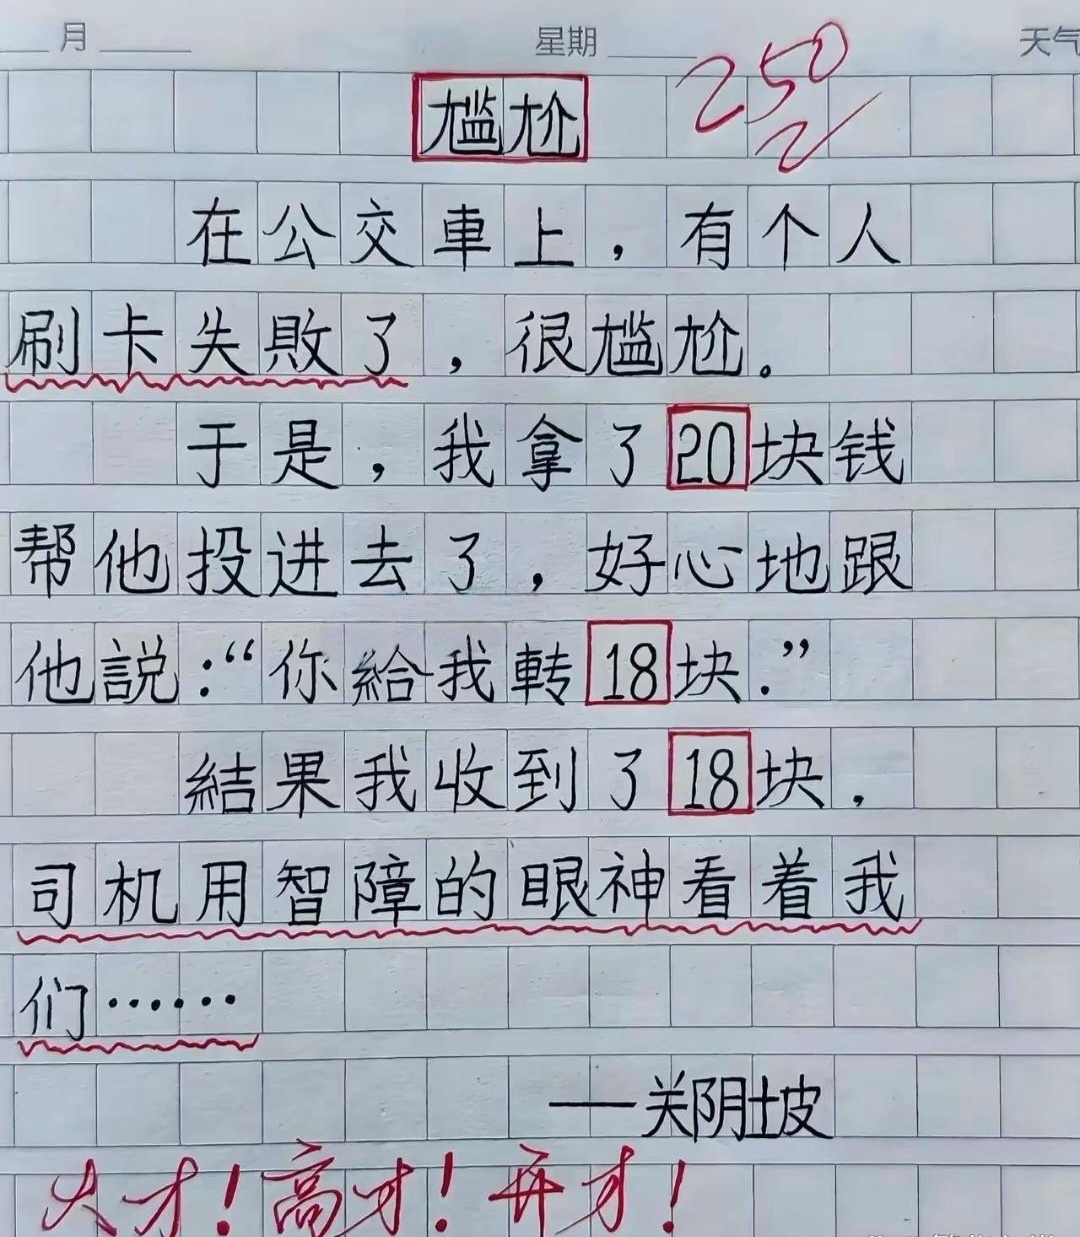 月 星期 天气
250
尴尬
在公交車上，有个人
刷卡失敗了，很尴尬。
于是，我拿了20块钱
帮他投进去了，好心地跟
他説：“你給我轉18块.”
結果我收到了18块，
司机用智障的眼神看着我
们……
——关阴坡
人才！高才！奇才！